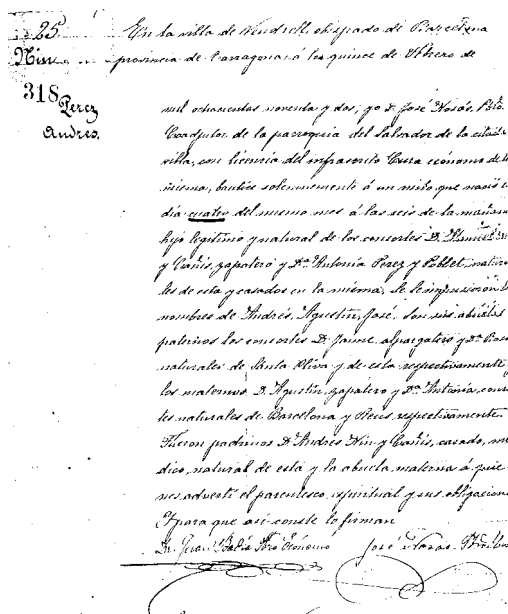 25 En la villa de Vendrell, obispado de Barcelona
Nin provincia de Tarragona á los quince de Febrero de
318
Perez
Andres.
mil ochocientos noventa y dos; yo D. José Pbro.
Coadjutor de la parroquia del Salvador de la citada
villa, con licencia del infrascrito Cura ecónomo de la
misma, bauticé solemnemente á un niño que nació el
día cuatro del mismo mes á las seis de la mañana
hijo legítimo y natural de los consortes D. Manuel Nin
y zapatero y Dª Antonia Perez y Poblet, natura
les de esta y casados en la misma. Se le impusieron los
nombres de Andrés, Agustín, José. Son sus abuelos
paternos los consortes D. Jaime, alpargatero y Dª Rosa
naturales de Santa Oliva y de esta respectivamente
los maternos D. Agustín, zapatero y Dª Antonia, consor
tes naturales de Barcelona y Reus respectivamente.
Fueron padrinos D. Andrés Nin y casado, mé
dico, natural de esta y la abuela materna á quie
nes advertí el parentesco espiritual y sus obligaciones
Y para que así conste lo firman
Dr. Juan Pbro Ecónomo José Pbro